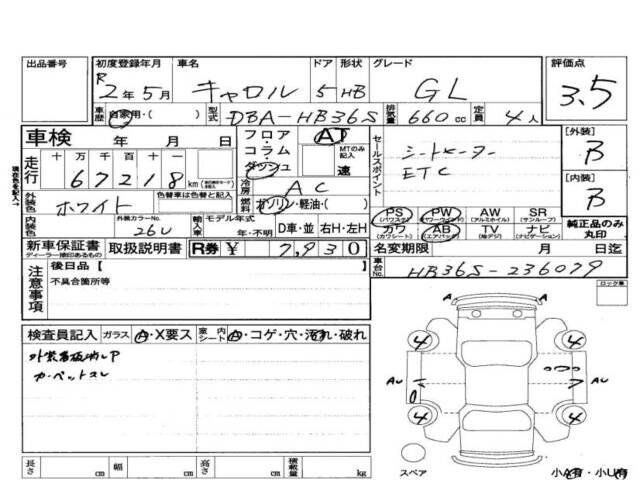 出品番号 初度登録年月 車名 ドア 形状 グレード 評価点
R2年5月 キャロル 5 HB GL 3.5
車歴 自家用・( ) 型式 DBA-HB36S 排気量 660cc 定員 4人
車検 年 月 日 フロア・コラム・ダッシュ AT MTのみ記入 速
走行 十万千百十一 67218 km
冷房 AC
外装色 ホワイト 色替車は色替と記入 燃料 ガソリン・軽油・( )
内装色 外装カラーNo. 26U 輸入車 モデル年式 年・不明 D車・並 右H・左H
新車保証書 ディーラー捺印あるもの 取扱説明書 R券 ¥ 7,930
セールスポイント シートヒーター
ETC
[外装] B
[内装] B
PS (パワステ) PW (パワーウィンド) AW (アルミホイル) SR (サンルーフ)
カワ (カワシート) AB (エアバック) TV (地デジ) ナビ (ナビゲーション) 純正品のみ丸印
名変期限 月 日迄
車台No. HB36S-236079
注意事項 後日品【
不具合箇所等
ロック車
検査員記入 ガラス A・X要ス 室内シート A・コゲ・穴・汚れ・破れ
カーペットスレ
4 4
AU AU
4 4
スペア 小A有・小U有
長さ cm 幅 cm 高さ cm 積載量 kg